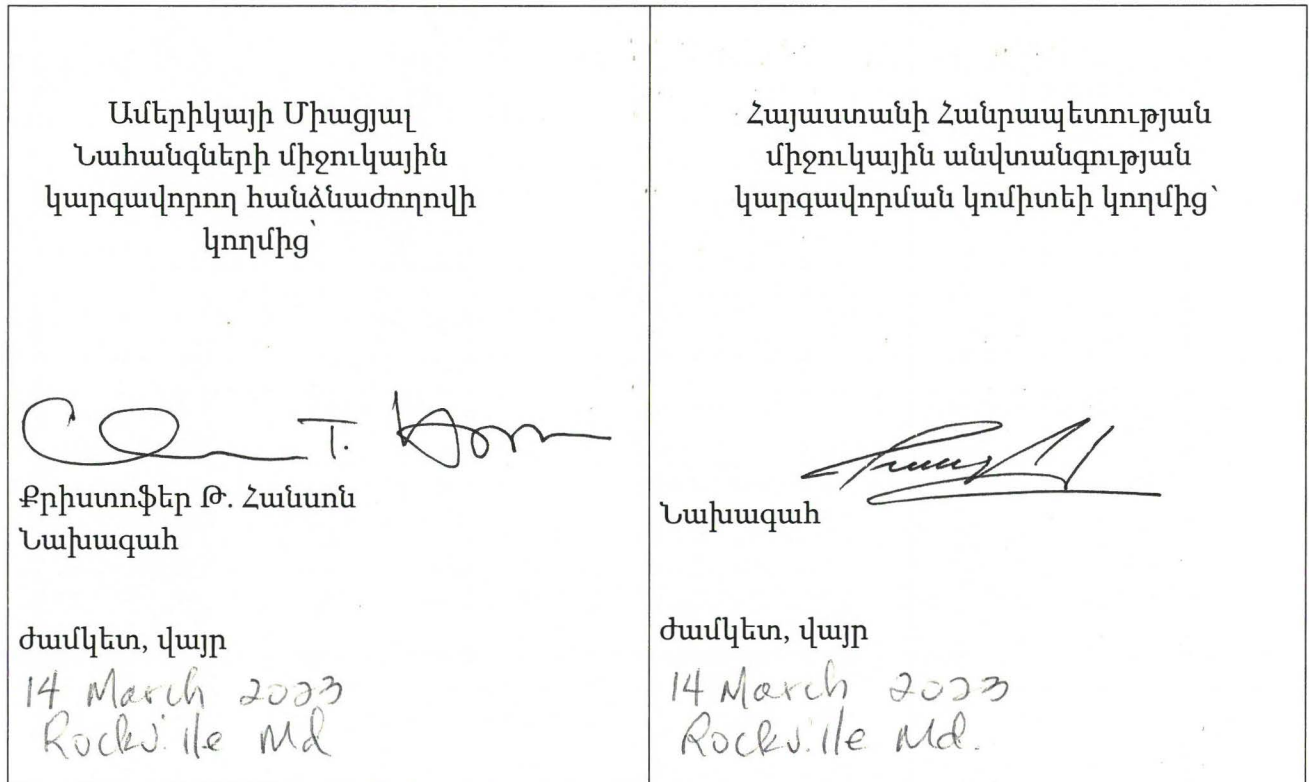 Ամերիկայի Միացյալ
Նահանգների միջուկային
կարգավորող հանձնաժողովի
կողմից՝
Քրիստոֆեր Թ. Հանսոն
Նախագահ
ժամկետ, վայր
14 March 2023
Rockville Md
Հայաստանի Հանրապետության
միջուկային անվտանգության
կարգավորման կոմիտեի կողմից՝
Նախագահ
ժամկետ, վայր
14 March 2023
Rockville Md.